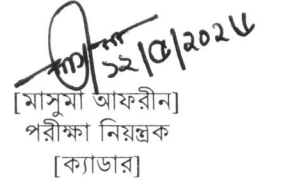 ১২/৫/২০২৫
[মাসুমা আফরীন]
পরীক্ষা নিয়ন্ত্রক
[ক্যাডার]